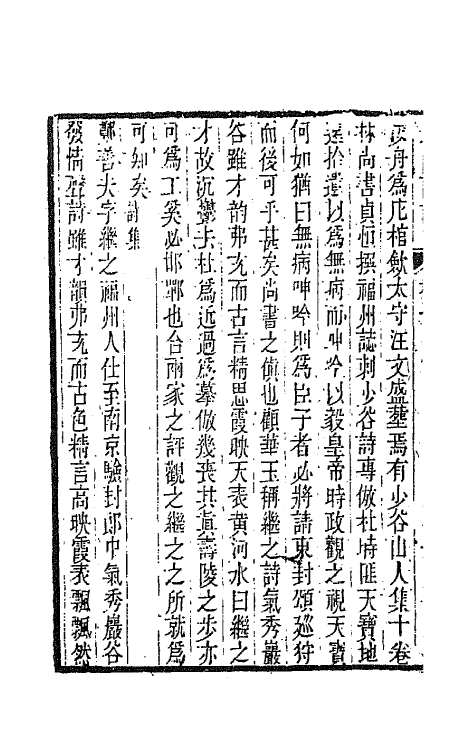 舟爲庀棺斂太守汪文盛塟焉有少谷山人集十卷
林尚書貞恒撰福州誌刺少谷詩專倣杜時匪天寶地
遠拾遺以爲無病而呻吟以毅皇帝時政觀之視天寶
何如猶曰無病呻吟則爲臣子者必將請東封頌廵狩
而後可乎甚矣尚書之傎也顧華玉稱繼之詩氣秀巖
谷雖才韵弗充而古言精思霞映天表黄河水曰繼之
才故沉鬱去杜爲近過爲摹倣幾喪其眞壽陵之歩亦
可爲工矣必邯鄲也合兩家之評觀之繼之之所就爲
可知矣詩集
鄭善夫字繼之福州人仕至南京驗封郎中氣秀巖谷
發情聲詩雖才韻弗充而古色精言高映霞表飄飄然